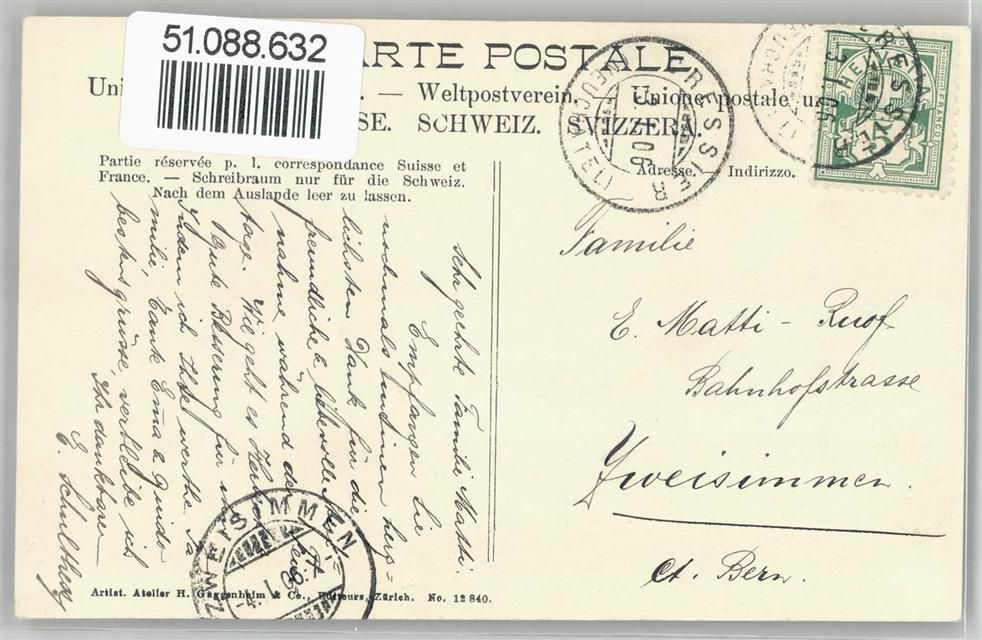 51.088.632
RTE POSTALE
Uni — Weltpostverein. Unione postale u
SE. SCHWEIZ. SVIZZERA.
Adresse. Indirizzo.
Partie réservée p. l. correspondance Suisse et
France. — Schreibraum nur für die Schweiz.
Nach dem Auslande leer zu lassen.
RESSIER (NEUCHATEL)
3.I.06
HELVETIA
Sehr geehrte Familie Matti.
Empfangen Sie
nochmals meinen herz-
lichsten Dank für die
freundliche & liebevolle
nahme während der
tage. Wie geht es Herrn
gute Besserung für
indem ich Ihre werthe Fa
milie, Tante Emma & Guido
bestens grüsse, verbleibe ich
Ihr dankbarer
E. Schulthess
Familie
E. Matti - Ruof
Bahnhofstrasse
Zweisimmen.
Ct. Bern.
ZWEISIMMEN
-4.I.06.X
Artist. Atelier H. Guggenheim & Co., Editeurs, Zürich. No. 12 840.